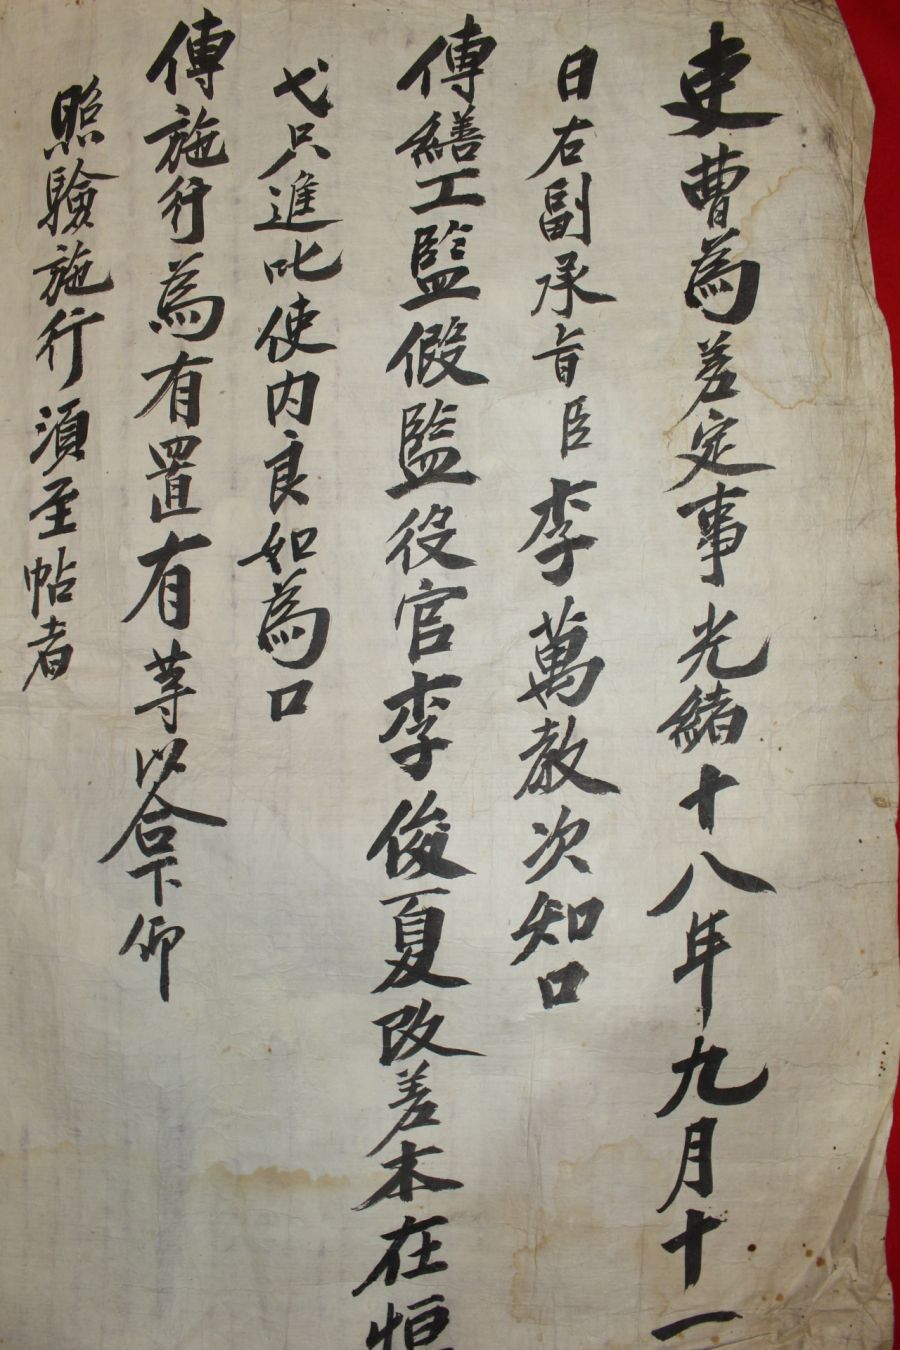 吏曹為差定事光緖十八年九月十一
日右副承旨臣李萬敎次知口
傳繕工監假監役官李俊夏改差本在恒
弋只進叱使內良如為口
傳施行為有置有等以合下仰
照驗施行須至帖者